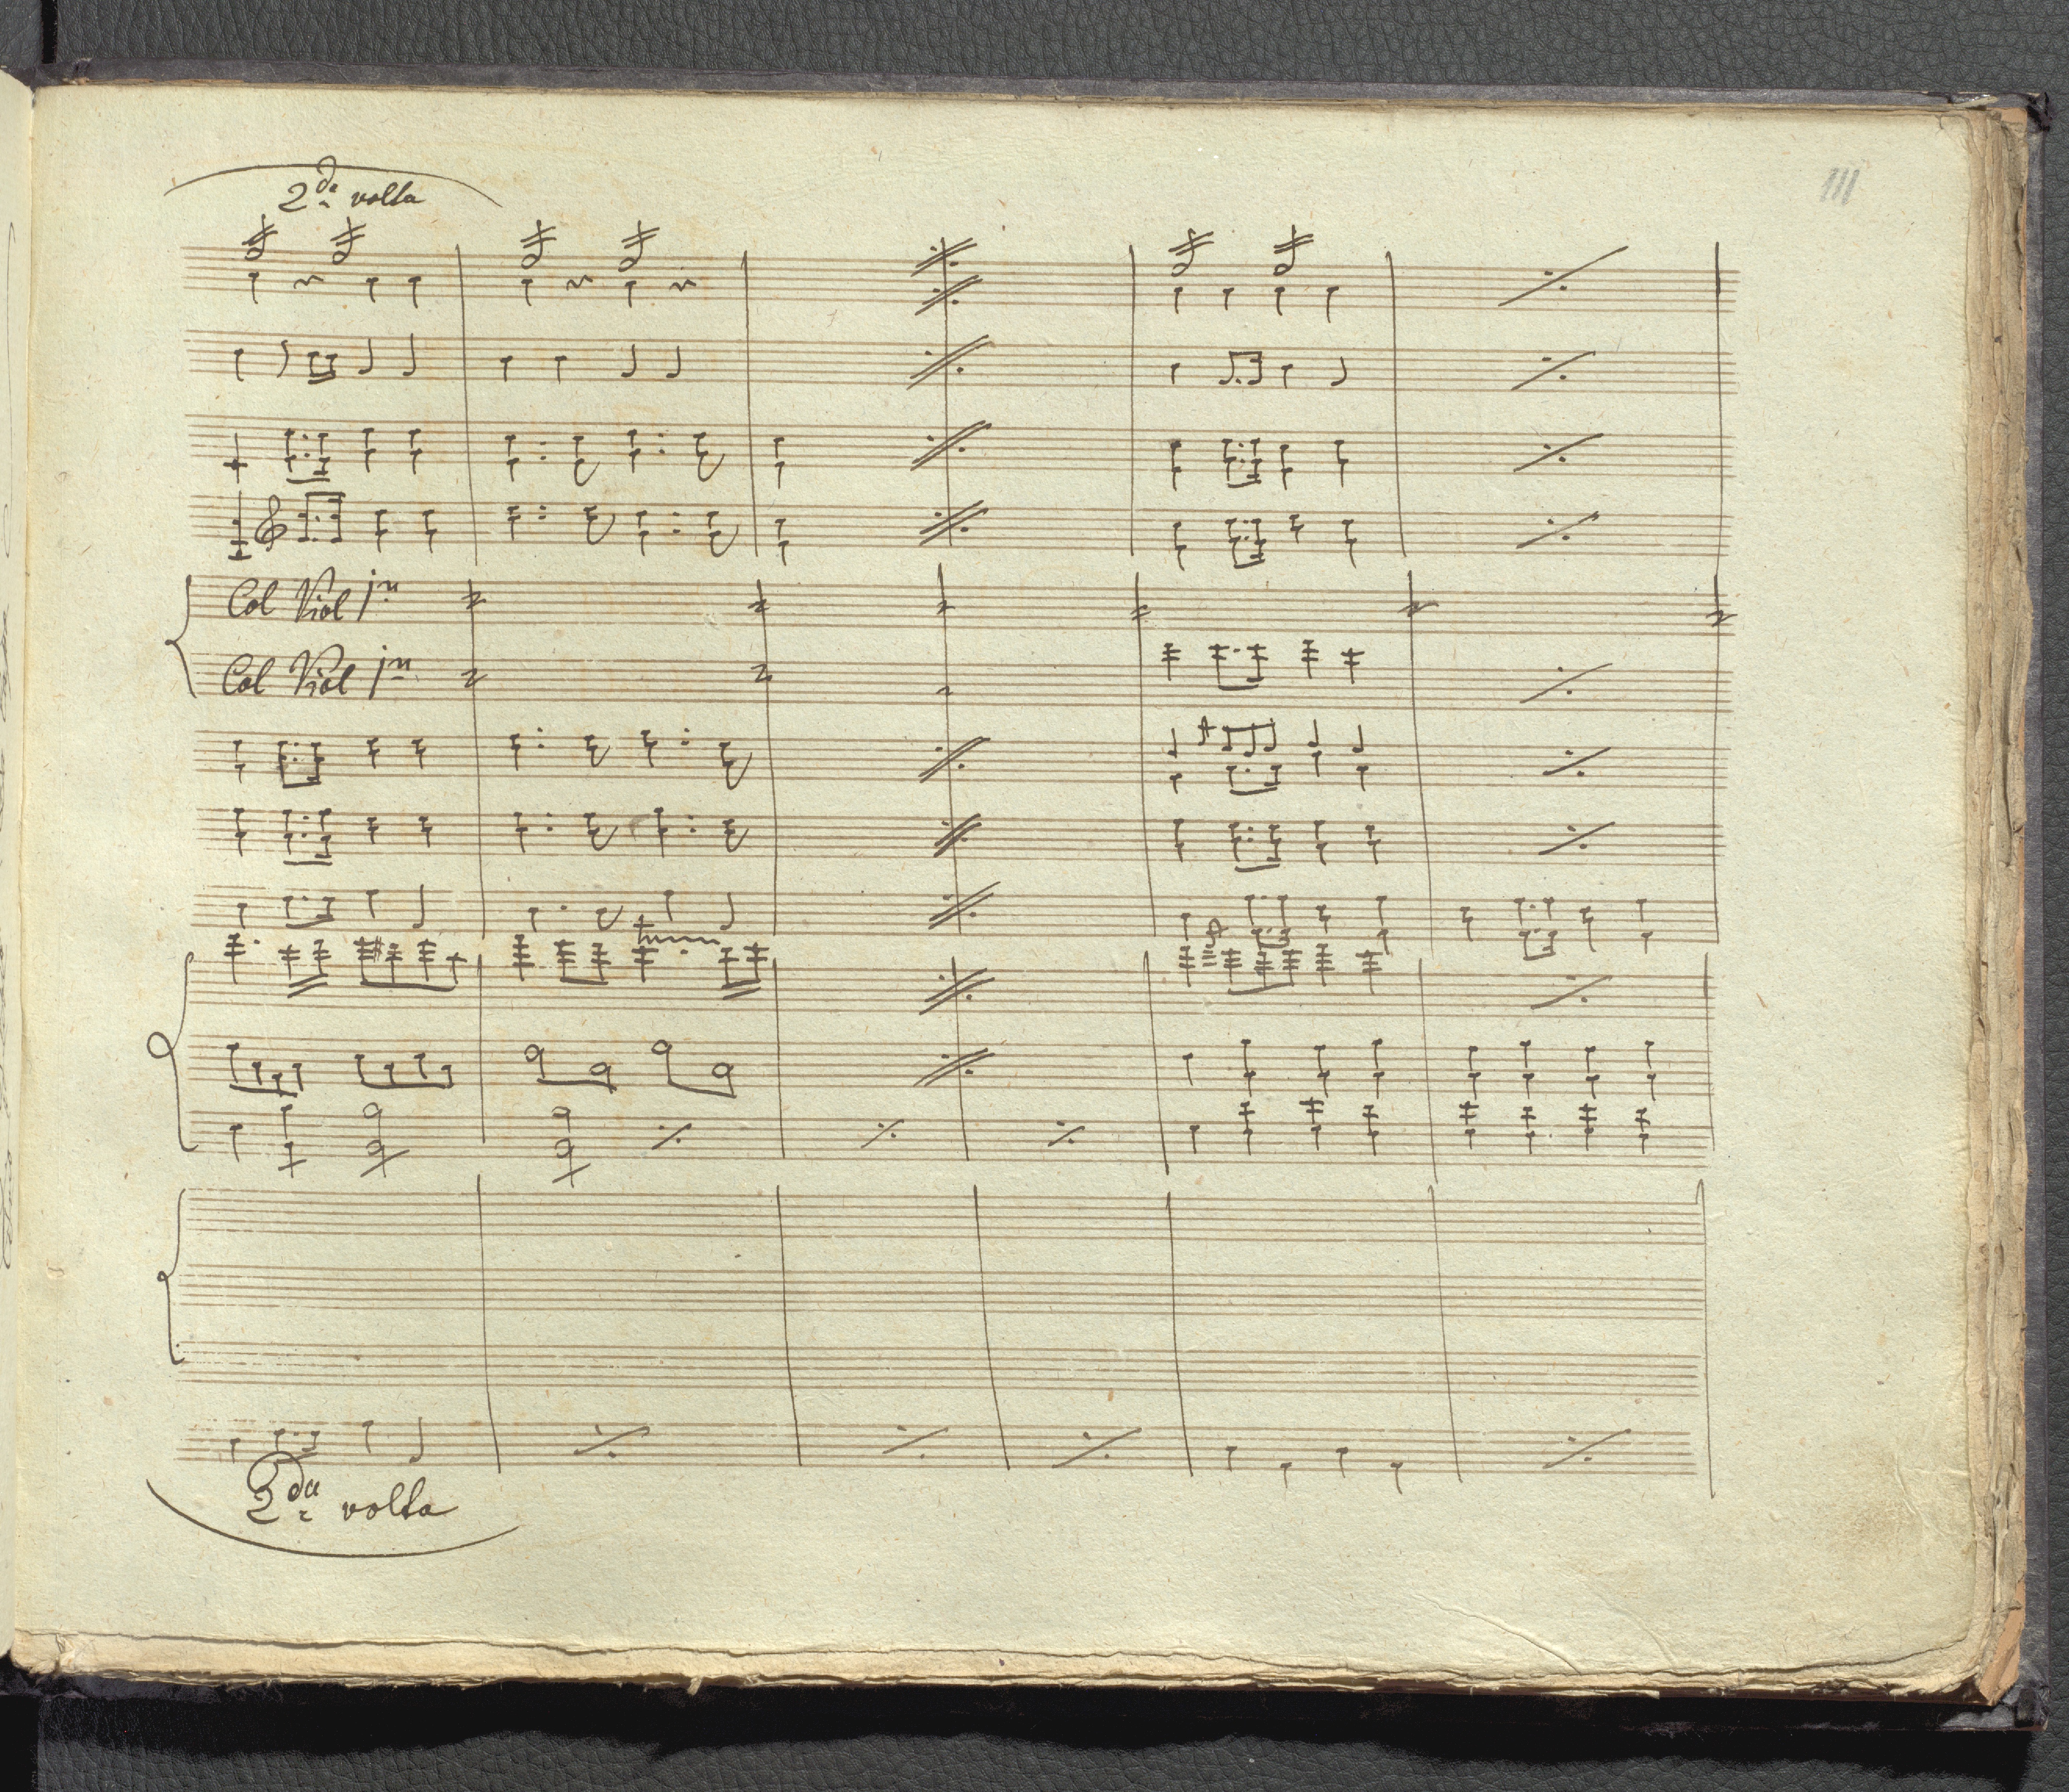 111
2da volta
Col Viol 1mo
Col Viol 1mo
2da volta